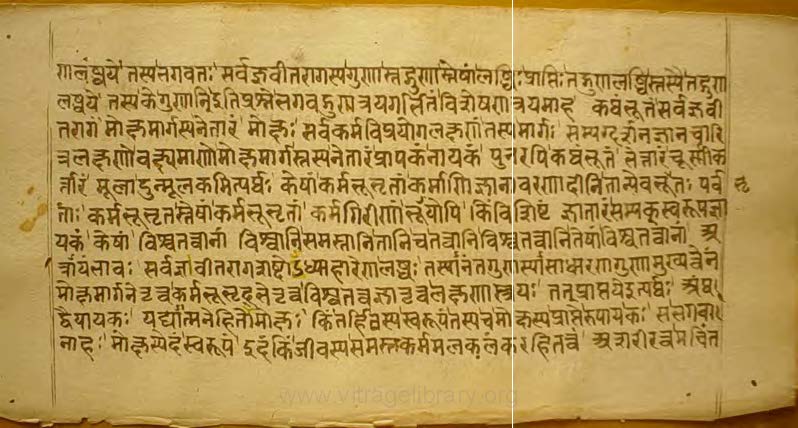 णालब्धये तस्य भगवतः सर्वज्ञवीतरागस्य गुणास्तद्गुणास्तेषां लब्धिः प्राप्तिः तद्गुणलब्धिस्तस्यै तद्गुण
लब्धये तस्य के गुणा इति प्रश्ने भगवद्गुणत्रयगर्भितं विशेषणत्रयमाह कथंभूतं सर्वज्ञवी
तरागं मोक्षमार्गस्य नेतारं मोक्षः सर्वकर्मविप्रयोगलक्षणः तस्य मार्गः सम्यग्दर्शनज्ञानचारि
त्रलक्षणो वक्ष्यमाणो मोक्षमार्गस्तस्य नेतारं प्रापकं नायकं पुनरपि कथंभूतं भेत्तारं चूर्णीक
र्तारं मूलादुन्मूलकमित्यर्थः केषां कर्मभूभृतां कर्माणि ज्ञानावरणादीनि तान्येव भूतः पर्व भृ
ताः कर्मभूभृतस्तेषां कर्मभूभृतां कर्मगिरीणां भूयोपि किं विशिष्टं ज्ञातारं सम्यक्स्वरूपज्ञा
यकं केषां विश्वतत्वानां विश्वानि समस्तानि तानि च तत्वानि विश्वतत्वानि तेषां विश्वतत्वानां अ
त्रायं भावः सर्वज्ञवीतरागशब्दोऽध्याहारेण लब्धः तस्यानंतगुणस्यासाधारणगुणा मुख्यत्वेन
मोक्षमार्गनेतृत्वकर्मभूभृद्भेत्तृत्वविश्वतत्वज्ञातृत्वलक्षणास्त्रयः तत्प्राप्तये इत्यर्थः अथ
द्वैपायकः यद्यात्मने हितो मोक्षः किं तर्हि तस्य स्वरूपं तस्य च मोक्षस्य प्राप्तेरुपायकः स भगवा
नाह मोक्षस्येदं स्वरूपं इदं किं जीवस्य समस्तकर्ममलकलंकरहितत्वं अशरीरत्वमचिंत
www.vitragelibrary.org